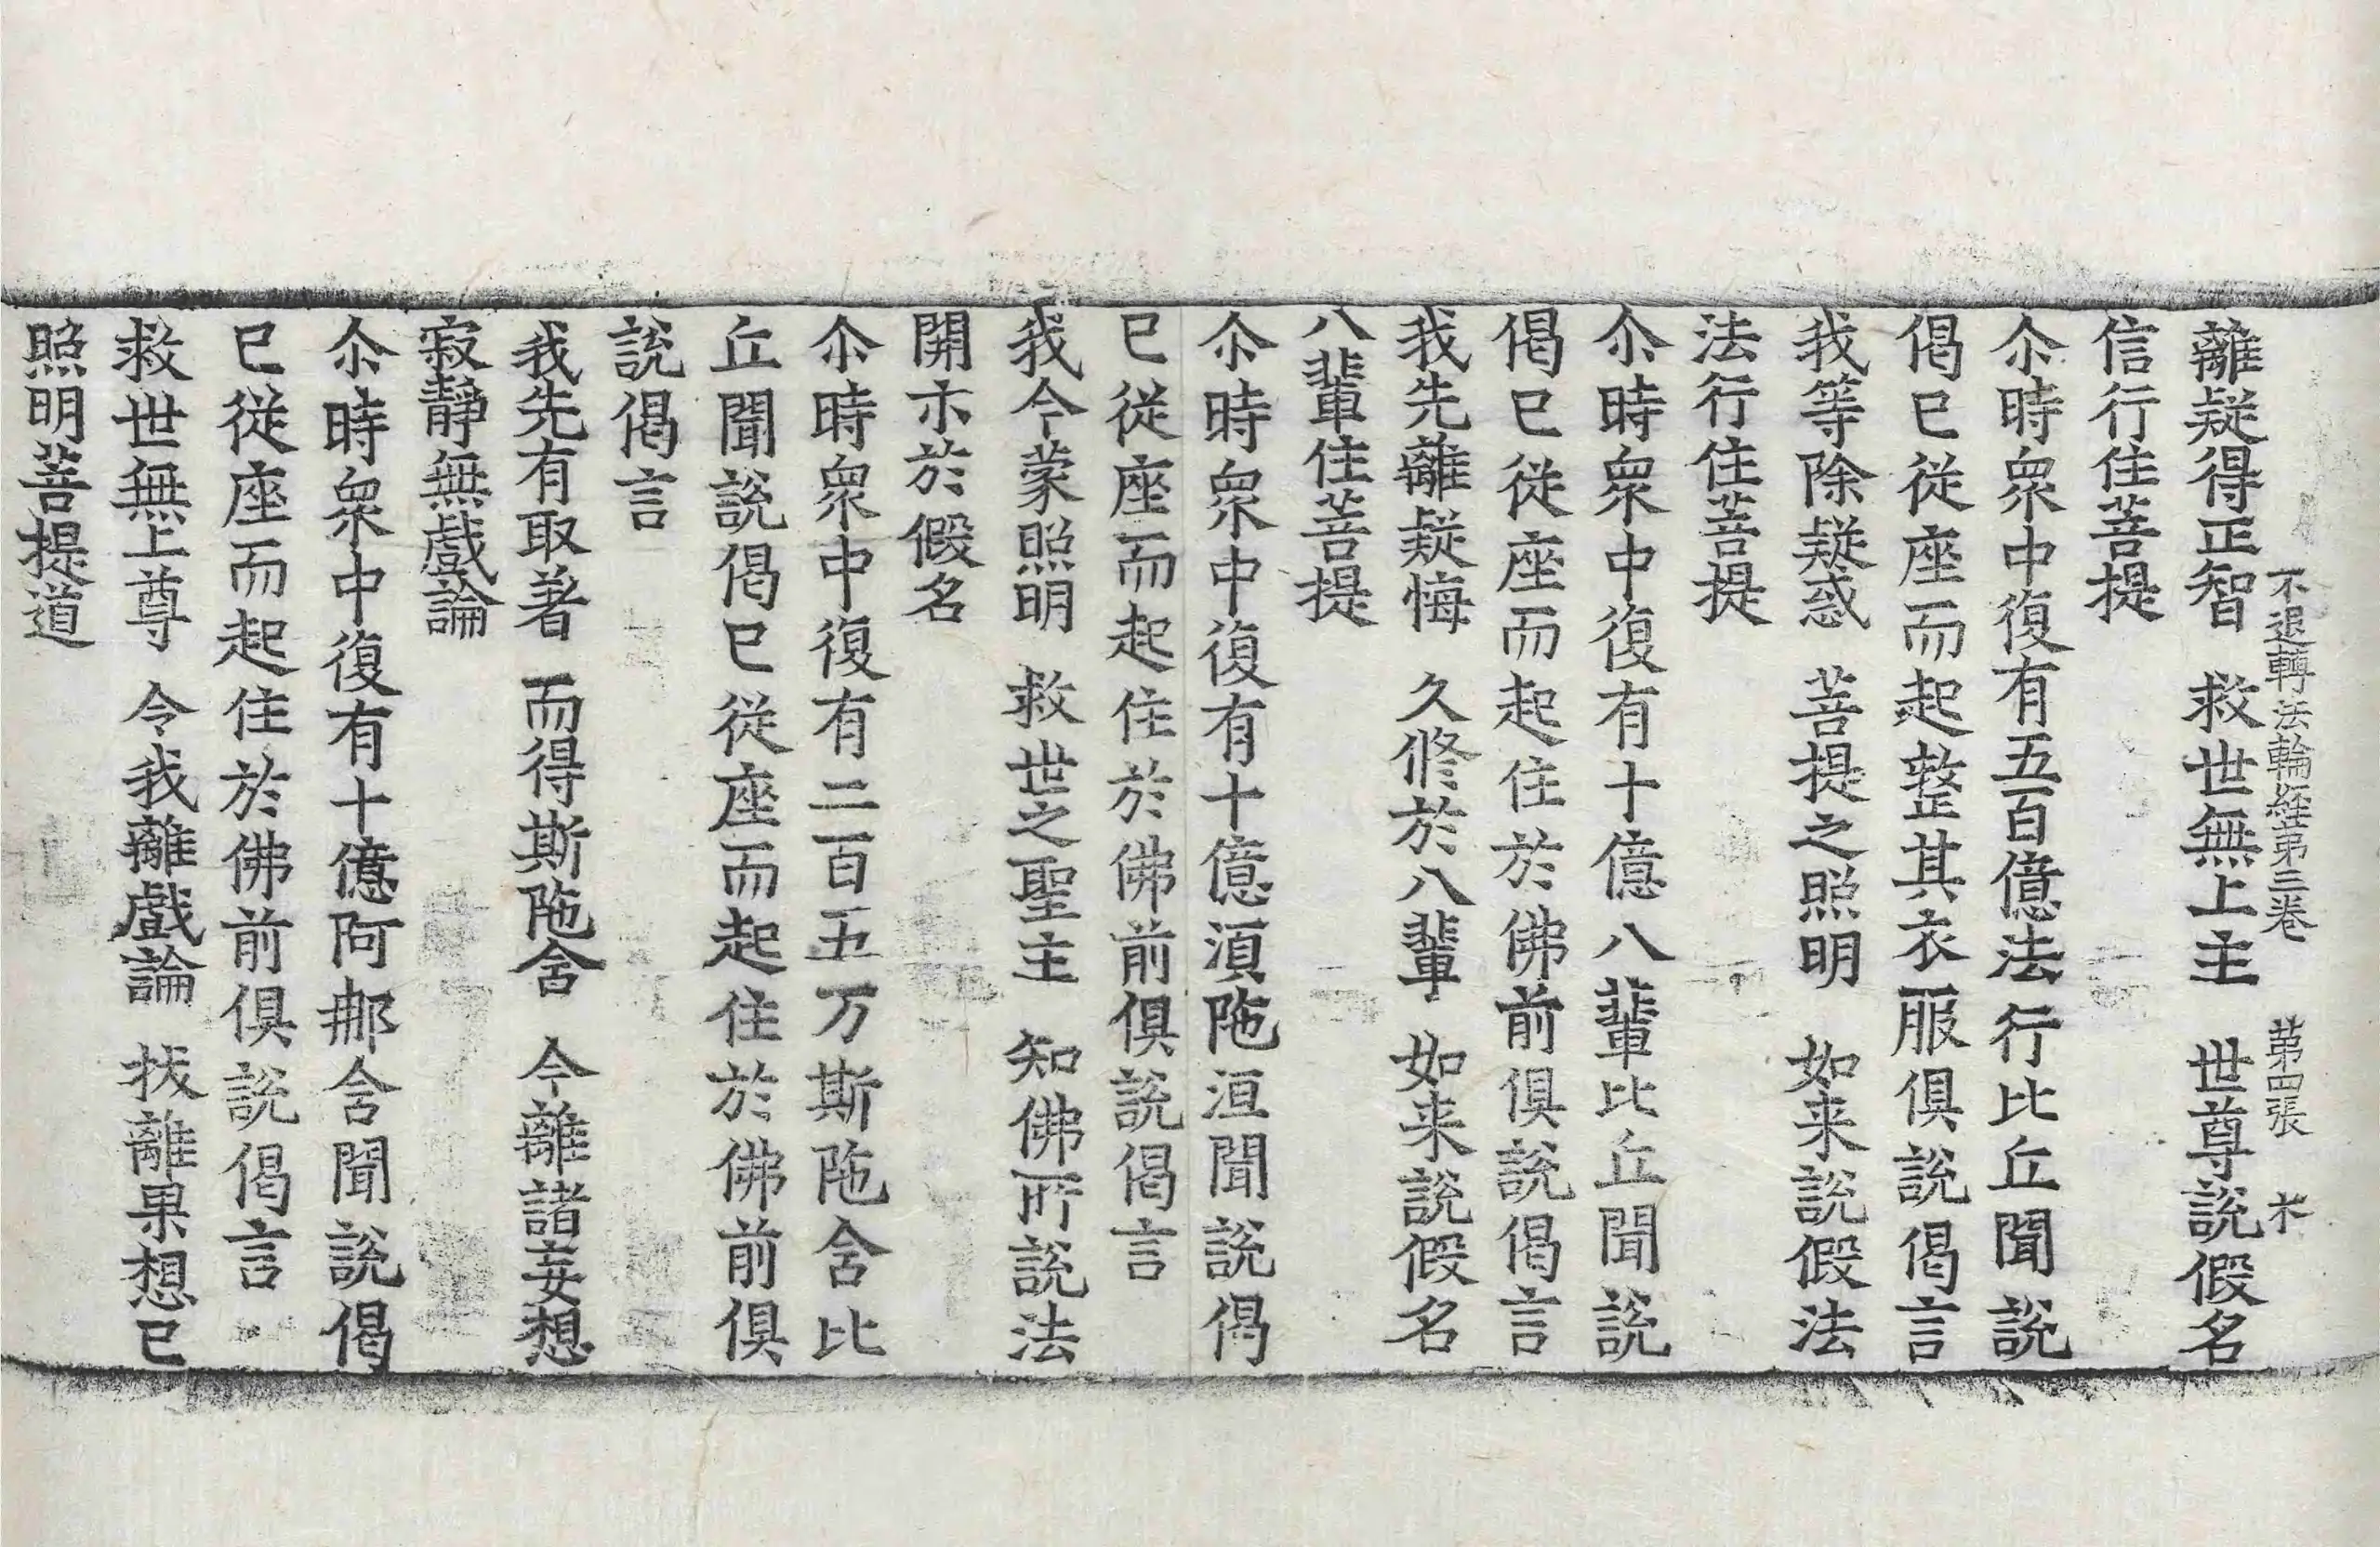 不退轉法輪經第三卷　第四張　木
離疑得正智　救世無上主　世尊說假名
信行住菩提
尒時衆中復有五百億法行比丘聞說
偈已從座而起整其衣服俱說偈言
我等除疑惑　菩提之照明　如来說假法
法行住菩提
尒時衆中復有十億八輩比丘聞說
偈已從座而起住於佛前俱說偈言
我先離疑悔　久修於八輩　如来說假名
八輩住菩提
尒時衆中復有十億湏陁洹聞說偈
已從座而起住於佛前俱說偈言
我今蒙照明　救世之聖主　知佛所說法
開示於假名
尒時衆中復有二百五万斯陁含比
丘聞說偈已從座而起住於佛前俱
說偈言
我先有取著　而得斯陁含　今離諸妄想
寂靜無戲論
尒時衆中復有十億阿那含聞說偈
已從座而起住於佛前俱說偈言
救世無上尊　令我離戲論　拔離果想已
照明菩提道